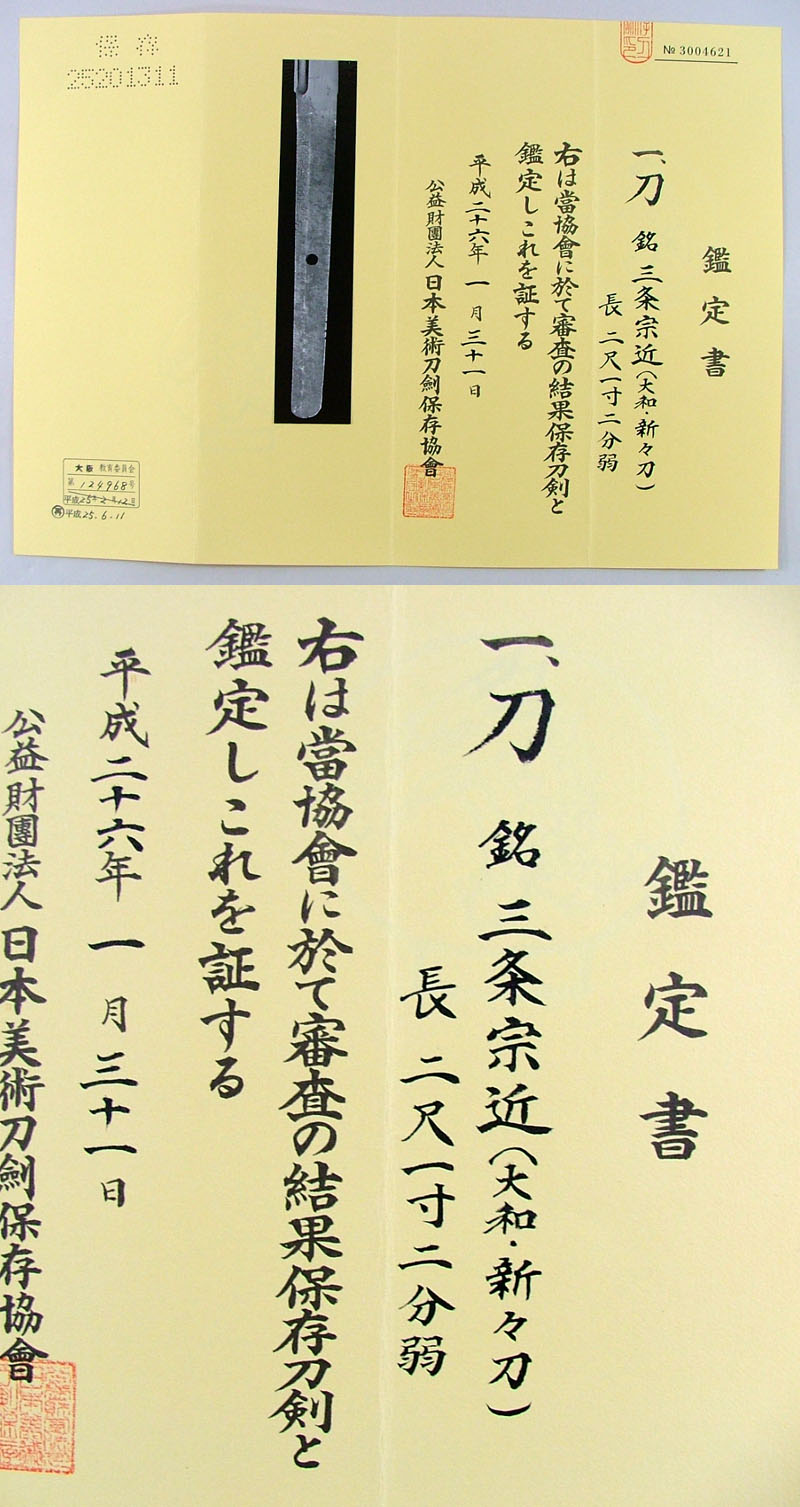 № 3004621
鑑定書
一、刀 銘 三条宗近(大和・新々刀)
長 二尺一寸二分弱
右は當協會に於て審査の結果保存刀剣と
鑑定しこれを証する
平成二十六年 一 月 三十一日
公益財團法人 日本美術刀劍保存協會
保存
25201311
大阪 教育委員会
第 124968号
平成25年2月12日
再 平成 25.6.11
鑑定書
一、刀 銘 三条宗近(大和・新々刀)
長 二尺一寸二分弱
右は當協會に於て審査の結果保存刀剣と
鑑定しこれを証する
平成二十六年 一 月 三十一日
公益財團法人 日本美術刀劍保存協會